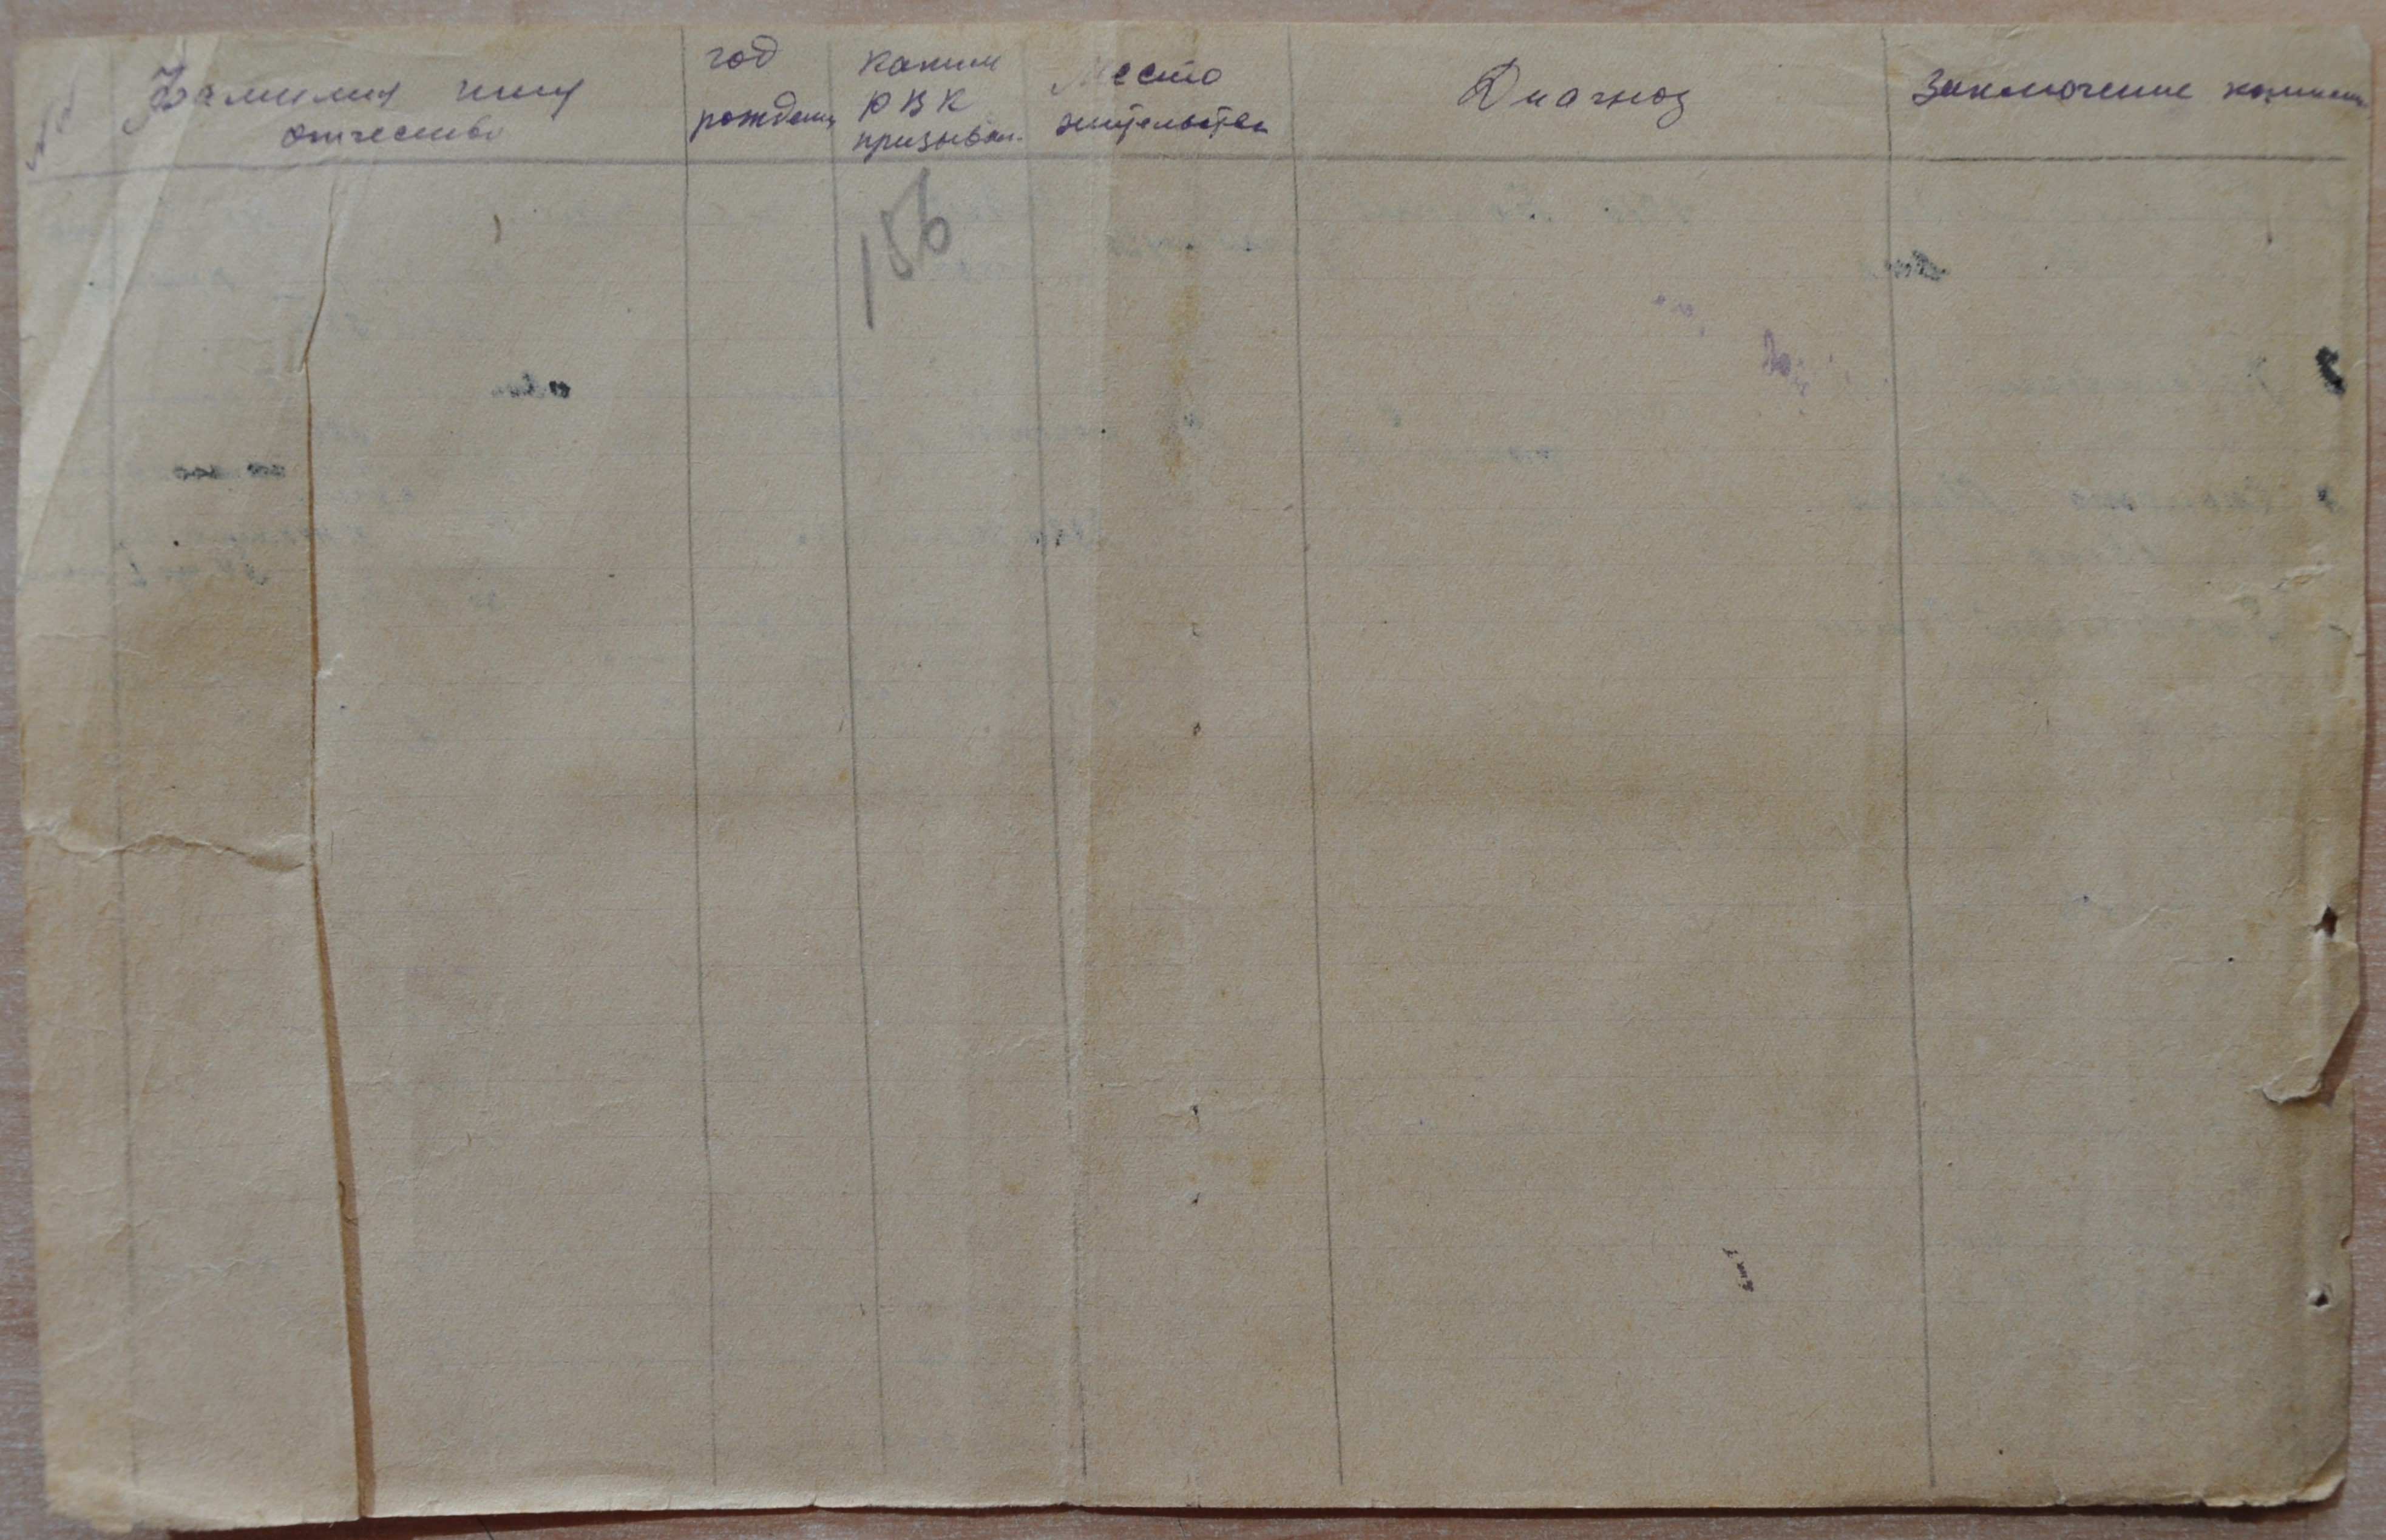 №№
Фамилия имя
отчество
год
рождения
каким
РВК
призывал.
Место
жительства
Диагноз
Заключение комиссии
156